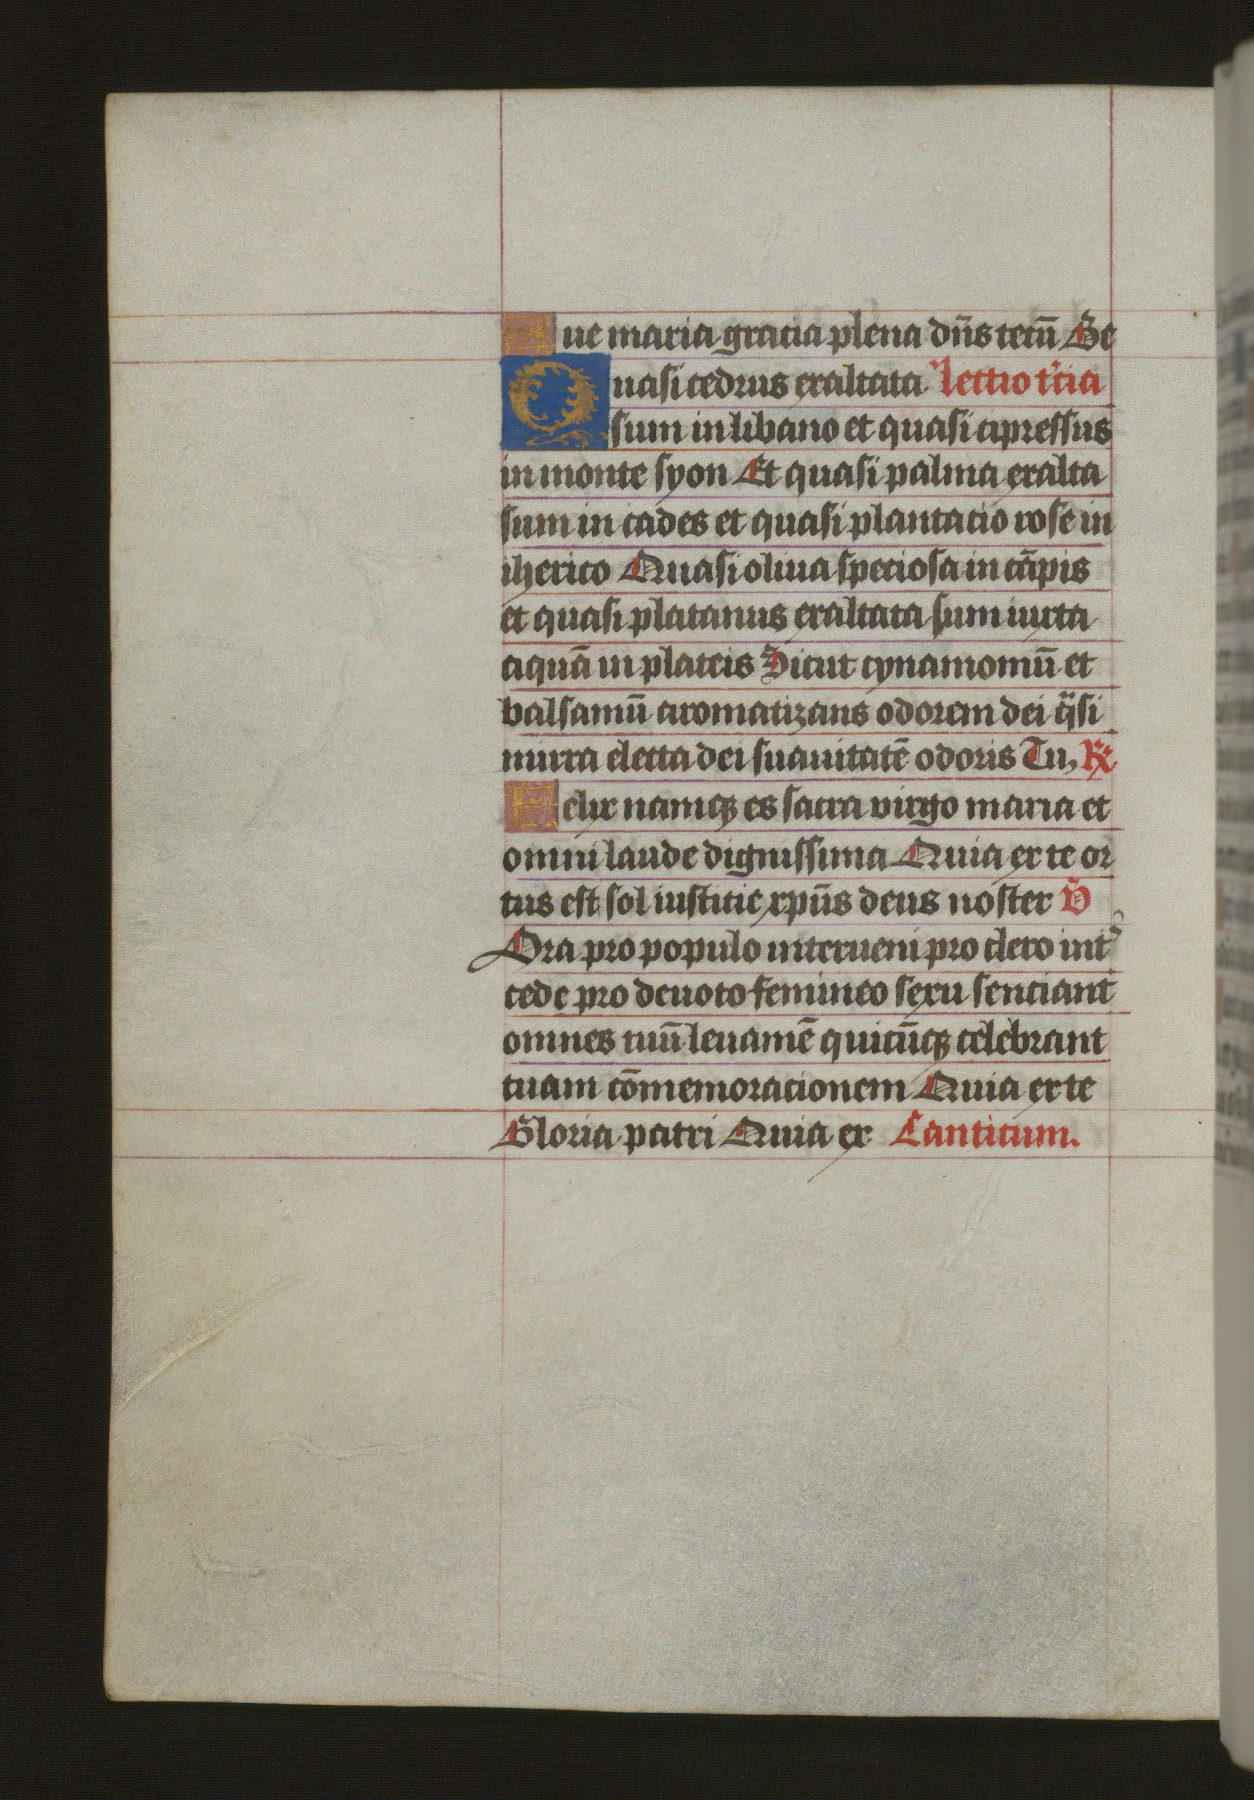 Aue maria gracia plena dn̄s tecū Be
Quasi cedrus exaltata lectio t̓cia
sum in libano et quasi cipressus
in monte syon Et quasi palma exalta
sum in cades et quasi plantacio rose in
iherico Quasi oliua speciosa in cāpis
et quasi platanus exaltata sum iuxta
aquā in plateis Sicut cynamomū et
balsamū aromatizans odorem dei q̄si
mirra electa dei suauitatē odoris Tu, ℟
Felix namqꝫ es sacra virgo maria et
omni laude dignissima Quia ex te or
tus est sol iusticie xp̄us deus noster V̄
Ora pro populo interueni pro clero int᷑
cede pro deuoto femineo sexu senciant
omnes tuū leuamē quicūqꝫ celebrant
tuam cōmemoracionem Quia ex te
Gloria patri Quia ex Canticum.